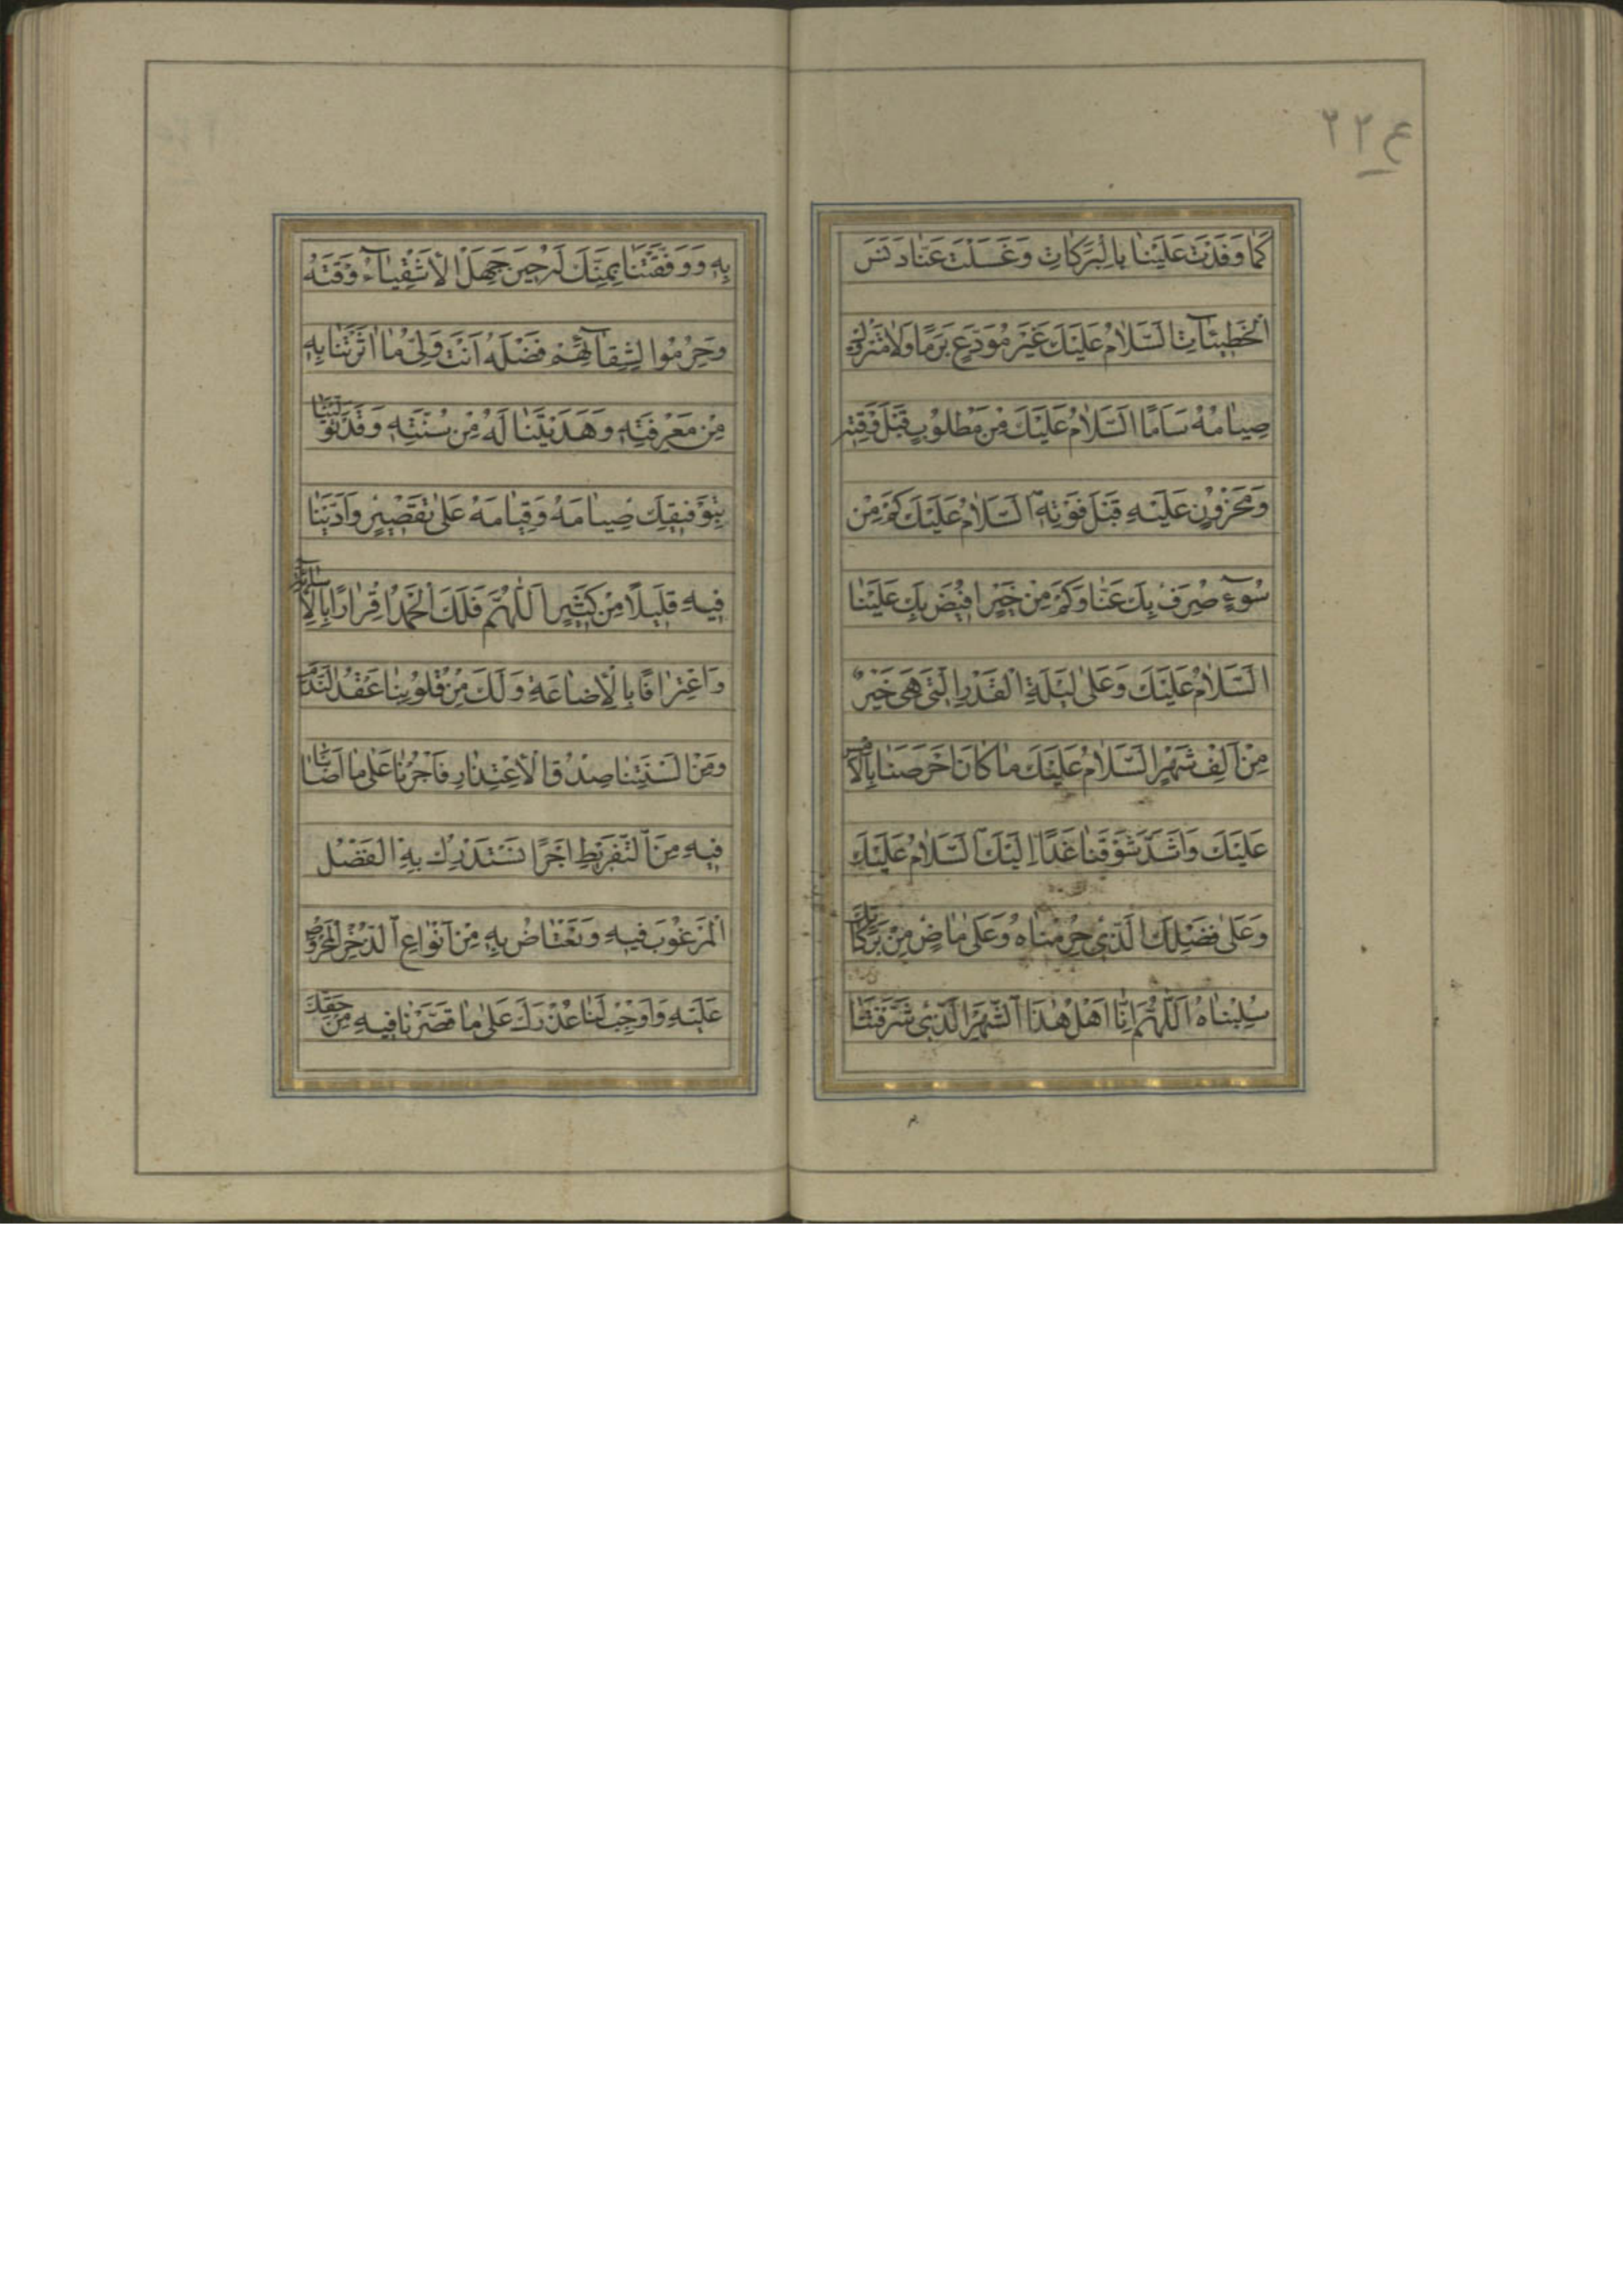 ع ٢٢
كَمَا وَفَدْتَ عَلَيْنَا بِالْبَرَكَاتِ وَغَسَلْتَ عَنَّا دَنَسَ
الْخَطِيئَاتِ اَلسَّلَامُ عَلَيْكَ غَيْرَ مُوَدَّعٍ بَرَمًا وَلَا مَتْرُوكٍ
صِيَامُهُ سَاَمًا اَلسَّلَامُ عَلَيْكَ مِنْ مَطْلُوبٍ قَبْلَ وَقْتِهِ
وَمَحْزُونٍ عَلَيْهِ قَبْلَ فَوْتِهِ اَلسَّلَامُ عَلَيْكَ كَمْ مِنْ
سُوۤءٍ صُرِفَ بِكَ عَنَّا وَكَمْ مِنْ خَيْرٍ اُفِيضَ بِكَ عَلَيْنَا
اَلسَّلَامُ عَلَيْكَ وَعَلَى لَيْلَةِ الْقَدْرِ الَّتِي هِيَ خَيْرٌ
مِنْ اَلْفِ شَهْرٍ اَلسَّلَامُ عَلَيْكَ مَا كَانَ اَحْرَصَنَا بِالْاَمْسِ
عَلَيْكَ وَاَشَدَّ شَوْقَنَا غَدًا اِلَيْكَ اَلسَّلَامُ عَلَيْكَ
وَعَلَى فَضْلِكَ الَّذِي حُرِمْنَاهُ وَعَلَى مَاضٍ مِنْ بَرَكَاتِكَ
سُلِبْنَاهُ اَللّٰهُمَّ اِنَّا اَهْلُ هٰذَا الشَّهْرِ الَّذِي شَرَّفْتَنَا
بِهِ وَوَفَّقْتَنَا بِمَنِّكَ لَهُ حِينَ جَهِلَ الْاَشْقِيَاۤءُ وَقْتَهُ
وَحُرِمُوا لِشَقَاۤئِهِمْ فَضْلَهُ اَنْتَ وَلِيُّ مَا اٰثَرْتَنَا بِهِ
مِنْ مَعْرِفَتِهِ وَهَدَيْتَنَا لَهُ مِنْ سُنَّتِهِ وَقَدْ تَوَلَّيْنَا
بِتَوْفِيقِكَ صِيَامَهُ وَقِيَامَهُ عَلَى تَقْصِيرٍ وَاَدَّيْنَا
فِيهِ قَلِيلًا مِنْ كَثِيرٍ اَللّٰهُمَّ فَلَكَ الْحَمْدُ اِقْرَارًا بِالْاِسَاۤئَةِ
وَاعْتِرَافًا بِالْاِضَاعَةِ وَلَكَ مِنْ قُلُوبِنَا عَقْدُ النَّدَمِ
وَمِنْ اَلْسِنَتِنَا صِدْقُ الْاِعْتِذَارِ فَاْجُرْنَا عَلَى مَا اَصَابَنَا
فِيهِ مِنَ التَّفْرِيطِ اَجْرًا نَسْتَدْرِكُ بِهِ الْفَضْلَ
الْمَرْغُوبَ فِيهِ وَنَعْتَاضُ بِهِ مِنْ اَنْوَاعِ الذُّخْرِ الْمَحْرُوصِ
عَلَيْهِ وَاَوْجِبْ لَنَا عُذْرَكَ عَلَى مَا قَصَّرْنَا فِيهِ مِنْ حَقِّكَ